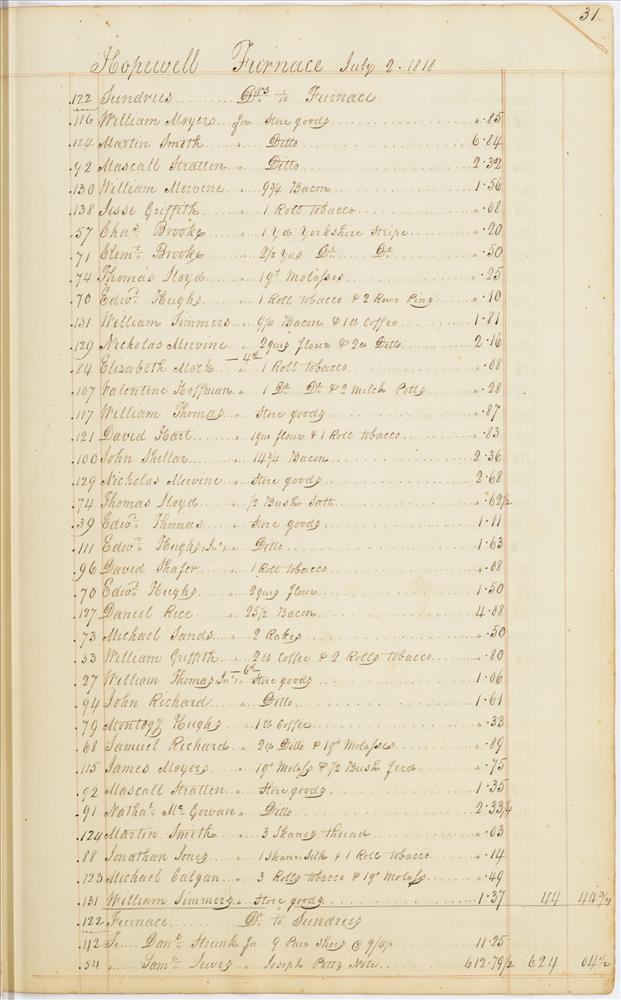 31
Hopewell Furnace July 2. 1818
122 Sundries Drs to Furnace
116 William Moyers for Store goods .85
124 Martin Smith " Ditto 6.84
92 Mascall Stratten " Ditto 2.32
130 William Mervine " 9¾ Bacon 1.56
138 Jesse Griffith " 1 Roll tobacco ".08
57 Chas. Brooke " 1 Yd Yorkshire Stripe ".20
71 Clemt. Brooke " 2½ Yds Do. Do. ".50
74 Thomas Lloyd " 1 qt Molasses ".25
70 Edwd. Hughs " 1 Roll Tobacco & 2 Rows Pins ".10
131 William Simmers " 9½ Bacon & 1 lb Coffee 1.81
129 Nicholas Mervine " 2 qrs flour & 2 lb Ditto 2.16
— 4th —
84 Elizabeth Mock " 1 Roll tobacco ".08
107 Valentine Hoffman " 1 Do. Do. & 2 Milch Potts ".28
117 William Thomas " Store goods ".87
121 David Hart " 1 qr flour & 1 Roll tobacco ".83
100 John Shellar " 14¾ Bacon 2.36
129 Nicholas Mervine " Store goods 2.68
74 Thomas Lloyd " ½ Bush Salt ".62½
39 Edwd. Thomas " Store goods 1.11
111 Edwd. Hughs Junr. " Ditto 1.63
96 David Shafer " 1 Roll tobacco ".08
70 Edwd. Hughs " 2 qrs flour 1.50
127 Daniel Rice " 25½ Bacon 4.08
73 Michael Sands " 2 Rakes ".50
33 William Griffith " 2 lb Coffee & 2 Rolls tobacco ".80
— 6th —
27 William Thomas Junr. " Store goods 1.06
94 John Richard " Ditto 1.61
79 Montogy Hughs " 1 lb Coffee ".33
68 Samuel Richard " 2 lb Ditto & 1 qt Molasses ".89
115 James Moyers " 1 qt Molass & ½ Bush feed ".75
92 Mascall Stratten " Store goods 1.35
91 Nathal. Mc.Gowan " Ditto 2.33¾
124 Martin Smith " 3 Skanes thread ".03
88 Jonathan Jones " 1 Skane Silk & 1 Roll tobacco ".14
123 Michael Galgan " 3 Rolls tobacco & 1 qt Molass ".49
131 William Simmers " Store goods 1.37 44 44¾
122 Furnace Dr. to Sundries
42 To Danl. Strunk for 9 Pair Shoes @ 9/4½ 11.25
54 " Saml. Lewis " Joseph Potts Note 612.79½ 624 04½